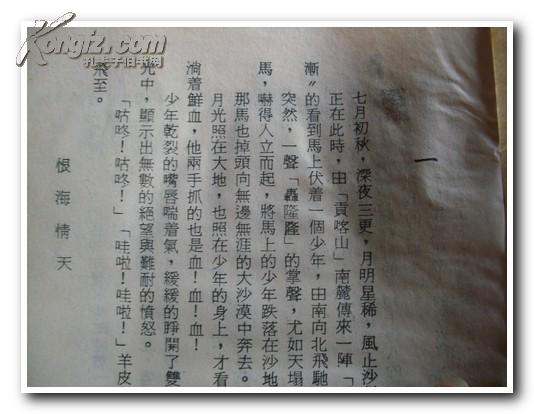 Kongfz.com
孔夫子旧书网
一
七月初秋,深夜三更,月明星稀,風止沙
正在此時,由「貢喀山」南麓傳來一陣「
漸〃的看到馬上伏着一個少年,由南向北飛馳
突然,一聲「轟隆隆」的掌聲,尤如天塌
馬,嚇得人立而起,將馬上的少年跌落在沙地
那馬也掉頭向無邊無涯的大沙漠中奔去。
月光照在大地,也照在少年的身上,才看
淌着鮮血,他兩手抓的也是血!血!血!
少年乾裂的嘴唇喘着氣,緩緩的睜開了雙
光中,顯示出無數的絕望與難耐的憤怒。
「咕咚!咕咚!」「哇啦!哇啦!」羊皮
飛至。
恨海情天